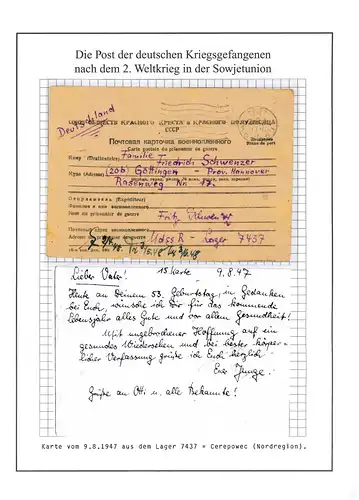 Die Post der deutschen Kriegsgefangenen
nach dem 2. Weltkrieg in der Sowjetunion
Deutschland
КРАСНОГО КРЕСТА и КРАСНОГО ПОЛУМЕСЯЦА
СССР
Почтовая карточка военнопленного
Carte postale du prisonnier de guerre
Кому (Destinataire) Familie Friedrich Schwenzer
Куда (Adresse) (20b) Göttingen - Prov. Hannover
Rasenweg Nr. 17.
Отправитель (Expéditeur)
Фамилия и имя военнопленного
Nom du prisonnier de guerre Fritz Schwenzer
UdSSR - Lager 7437
Lieber Vater! 15. Karte 9.8.47
Heute an Deinem 53. Geburtstag, in Gedanken
bei Euch, wünsche ich Dir für das kommende
Lebensjahr alles Gute und vor allem Gesundheit!
Mit ungebrochener Hoffnung auf ein
gesundes Wiedersehen und bei bester körper-
licher Verfassung grüße ich Euch herzlich
Euer Junge.
Grüße an Otti u. alle Bekannte!
Karte vom 9.8.1947 aus dem Lager 7437 = Cerepowec (Nordregion).